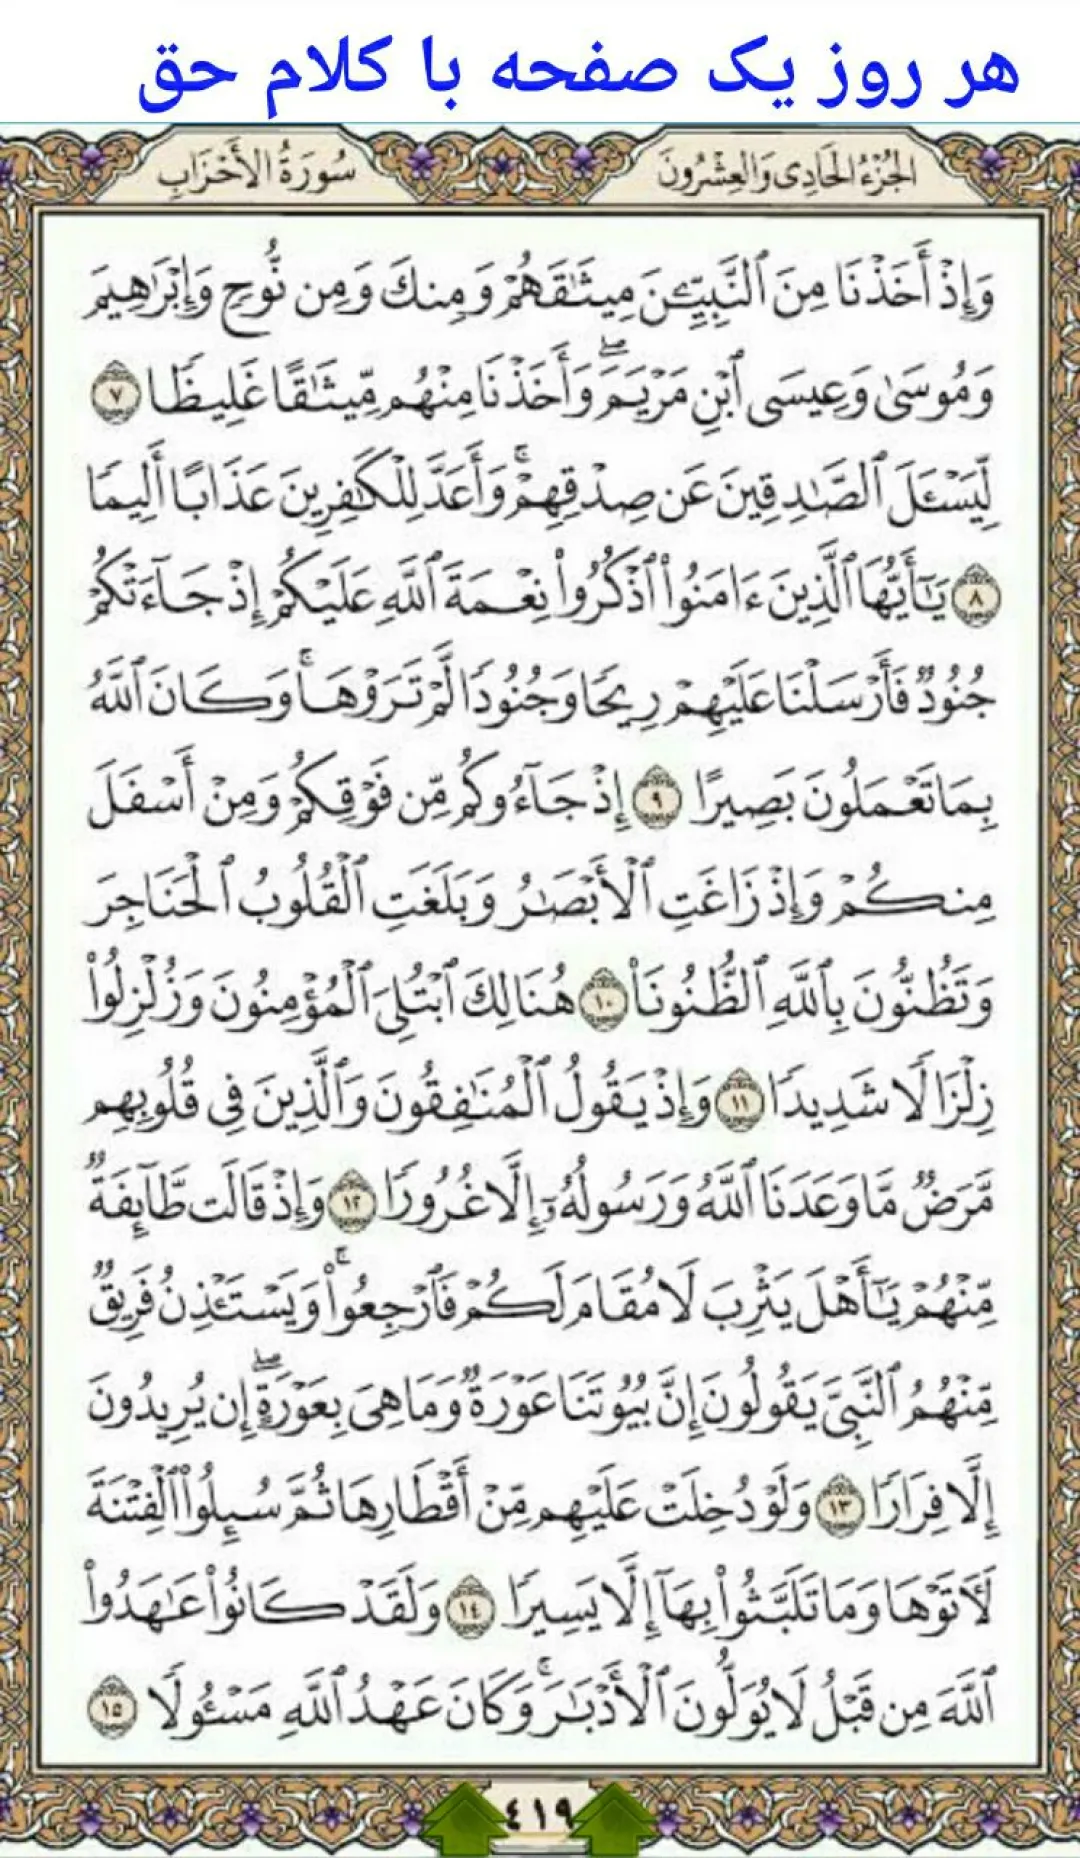 هر روز یک صفحه با کلام حق
الجُزْءُ الحَادِى وَالعِشْرُونَ
سُورَةُ الأَحْزَابِ
وَإِذْ أَخَذْنَا مِنَ ٱلنَّبِيِّـۧنَ مِيثَٰقَهُمْ وَمِنكَ وَمِن نُّوحٍ وَإِبْرَٰهِيمَ
وَمُوسَىٰ وَعِيسَى ٱبْنِ مَرْيَمَۖ وَأَخَذْنَا مِنْهُم مِّيثَٰقًا غَلِيظًا ٧
لِّيَسْـَٔلَ ٱلصَّٰدِقِينَ عَن صِدْقِهِمْۚ وَأَعَدَّ لِلْكَٰفِرِينَ عَذَابًا أَلِيمًا
٨ يَٰٓأَيُّهَا ٱلَّذِينَ ءَامَنُوا۟ ٱذْكُرُوا۟ نِعْمَةَ ٱللَّهِ عَلَيْكُمْ إِذْ جَآءَتْكُمْ
جُنُودٌ فَأَرْسَلْنَا عَلَيْهِمْ رِيحًا وَجُنُودًا لَّمْ تَرَوْهَاۚ وَكَانَ ٱللَّهُ
بِمَا تَعْمَلُونَ بَصِيرًا ٩ إِذْ جَآءُوكُم مِّن فَوْقِكُمْ وَمِنْ أَسْفَلَ
مِنكُمْ وَإِذْ زَاغَتِ ٱلْأَبْصَٰرُ وَبَلَغَتِ ٱلْقُلُوبُ ٱلْحَنَاجِرَ
وَتَظُنُّونَ بِٱللَّهِ ٱلظُّنُونَا۠ ١٠ هُنَالِكَ ٱبْتُلِىَ ٱلْمُؤْمِنُونَ وَزُلْزِلُوا۟
زِلْزَالًا شَدِيدًا ١١ وَإِذْ يَقُولُ ٱلْمُنَٰفِقُونَ وَٱلَّذِينَ فِى قُلُوبِهِم
مَّرَضٌ مَّا وَعَدَنَا ٱللَّهُ وَرَسُولُهُۥٓ إِلَّا غُرُورًا ١٢ وَإِذْ قَالَت طَّآئِفَةٌ
مِّنْهُمْ يَٰٓأَهْلَ يَثْرِبَ لَا مُقَامَ لَكُمْ فَٱرْجِعُوا۟ۚ وَيَسْتَـْٔذِنُ فَرِيقٌ
مِّنْهُمُ ٱلنَّبِىَّ يَقُولُونَ إِنَّ بُيُوتَنَا عَوْرَةٌ وَمَا هِىَ بِعَوْرَةٍۖ إِن يُرِيدُونَ
إِلَّا فِرَارًا ١٣ وَلَوْ دُخِلَتْ عَلَيْهِم مِّنْ أَقْطَارِهَا ثُمَّ سُئِلُوا۟ ٱلْفِتْنَةَ
لَـَٔاتَوْهَا وَمَا تَلَبَّثُوا۟ بِهَآ إِلَّا يَسِيرًا ١٤ وَلَقَدْ كَانُوا۟ عَٰهَدُوا۟
ٱللَّهَ مِن قَبْلُ لَا يُوَلُّونَ ٱلْأَدْبَٰرَۚ وَكَانَ عَهْدُ ٱللَّهِ مَسْـُٔولًا ١٥
٤١٩